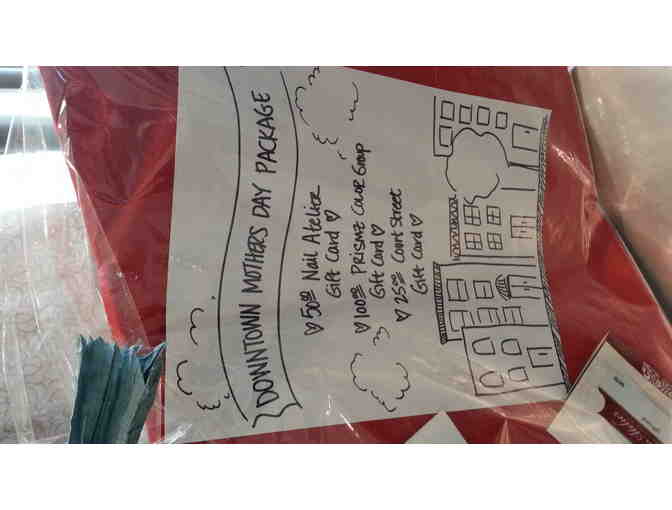 DOWNTOWN MOTHERS DAY PACKAGE
♡ 50⁰⁰ Nail Atelier
Gift Card ♡
♡ 100⁰⁰ PRISMZ COLOR Group
Gift Card ♡
♡ 25⁰⁰ Court Street
Gift Card ♡